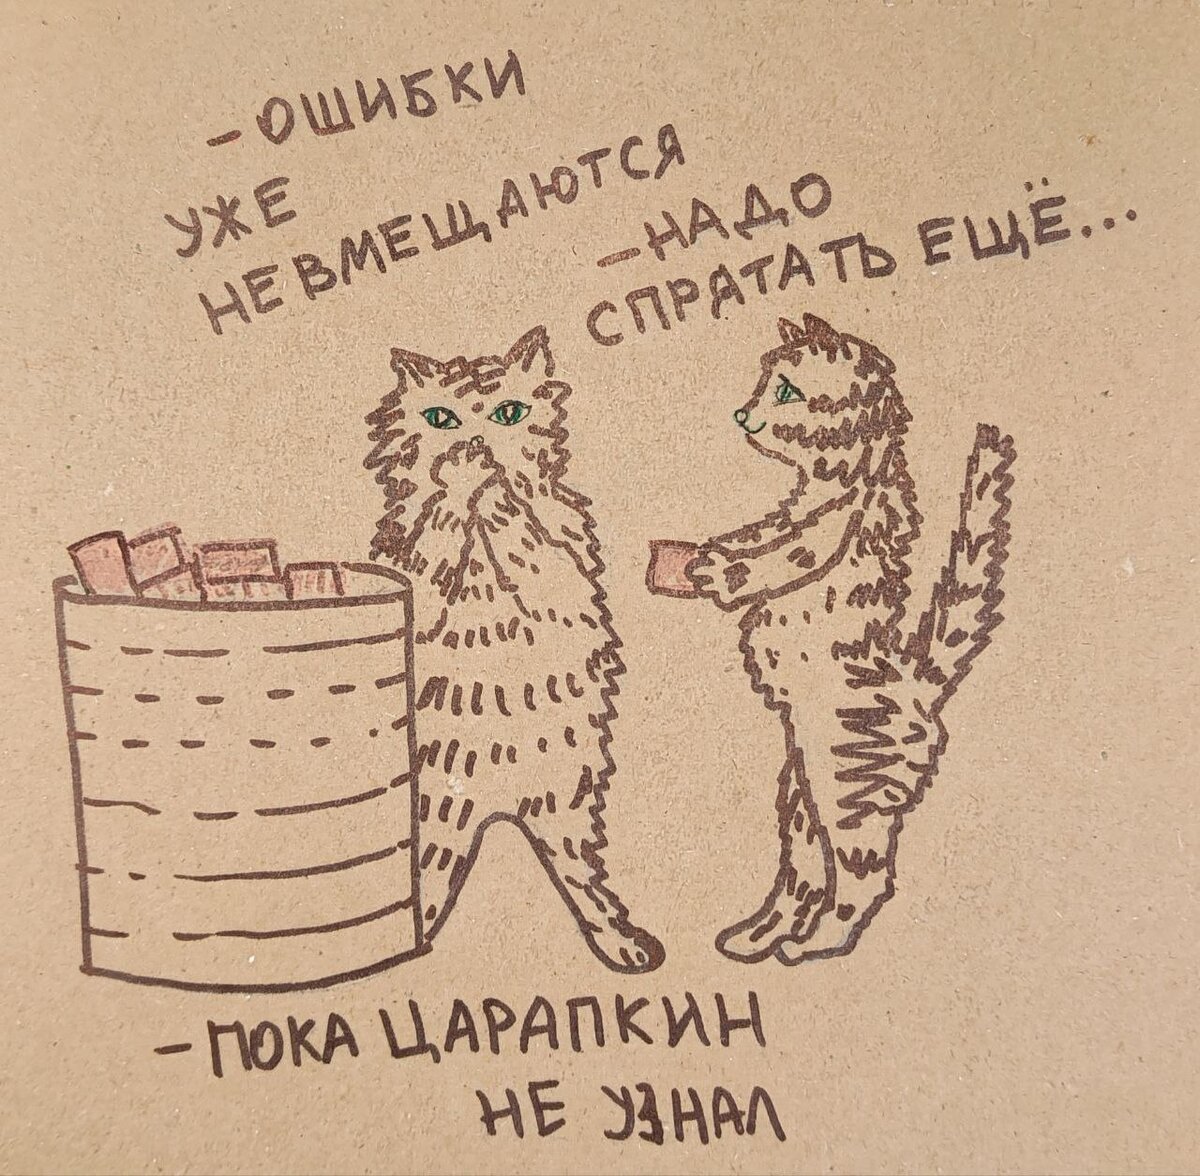 -ОШИБКИ
УЖЕ
НЕВМЕЩАЮТСЯ
-НАДО
СПРЯТАТЬ ЕЩЁ...
-ПОКА ЦАРАПКИН
НЕ УЗНАЛ